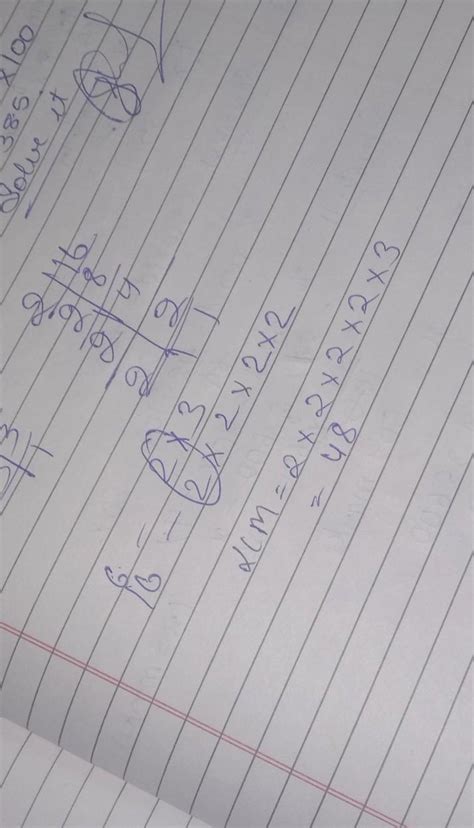 385 × 100
Solve it
2 | 16
2 | 8
2 | 4
2 | 2
1
3
1
6 = 2 × 3
16 = 2 × 2 × 2 × 2
LCM = 2 × 2 × 2 × 2 × 3
= 48